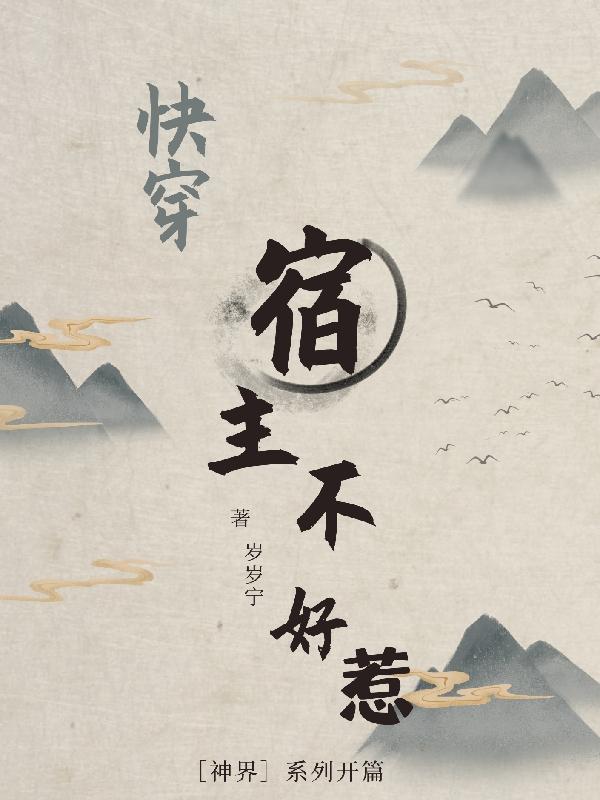 快穿
宿主不好惹
著
岁岁宁
［神界］系列开篇